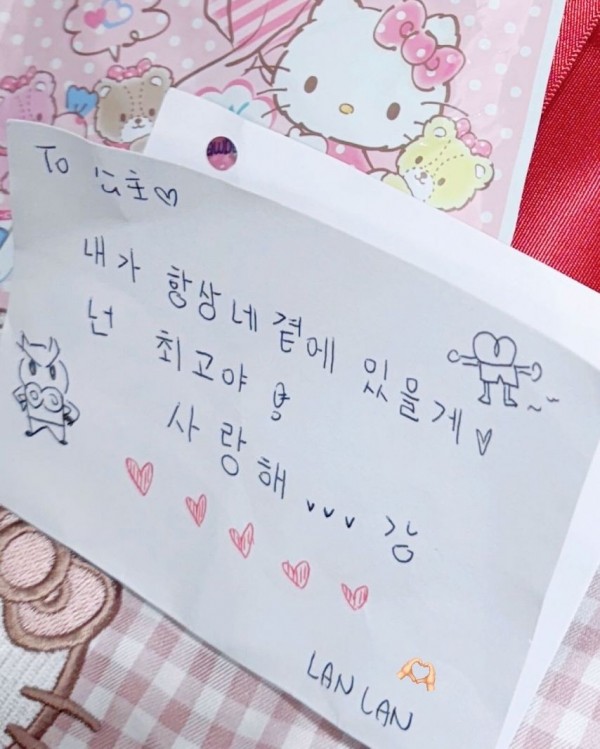 To 公主♡
내가 항상 네 곁에 있을게♡
넌 최고야
사랑해 ♡♡♡
LAN LAN